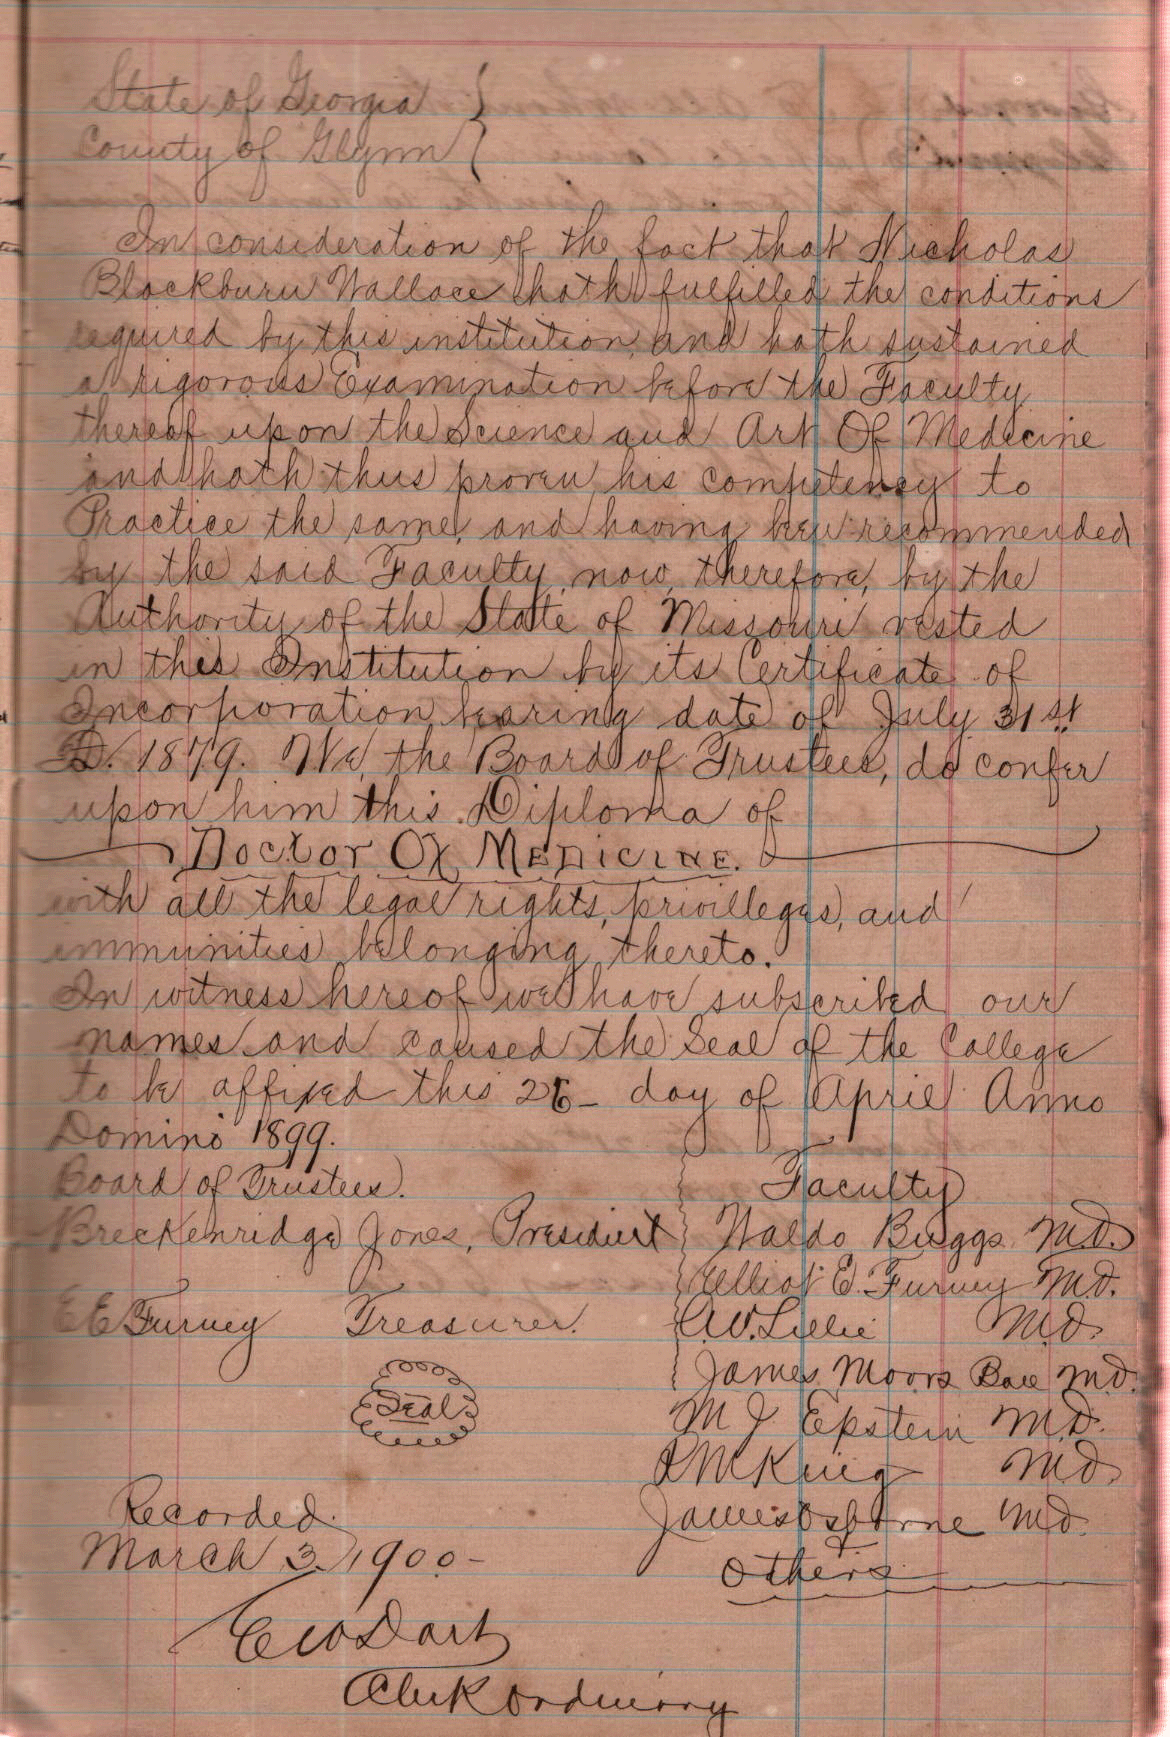 State of Georgia }
County of Glynn }
In consideration of the fact that Nicholas
Blackburn Wallace hath fulfilled the conditions
required by this institution, and hath sustained
a rigorous Examination before the Faculty
thereof upon the Science and Art Of Medicine
and hath thus proven his competency to
Practice the same, and having been recommended
by the said Faculty, now, therefore, by the
Authority of the State of Missouri vested
in this Institution by its Certificate of
Incorporation bearing date of July 31st.
D. 1879. We, the Board of Trustees, do confer
upon him this Diploma of
Doctor Of Medicine.
with all the legal rights, privilleges, and
immunities belonging thereto.
In witness hereof we have subscribed our
names and caused the Seal of the College
to be affixed this 26 day of April Anno
Domino 1899.
Board of Trustees.
Breckenridge Jones, President
E E Furney Treasurer.
Seal
Faculty
Waldo Briggs M.D.
Elliot E. Furney M.D.
A.V. Lillie M.D.
James Moors Ball M.D.
M J Epstein M.D.
R M King M.D.
James Osborne M.D.
& Others
Recorded
March 3. 1900-
E W Dart
Clerk Ordinary